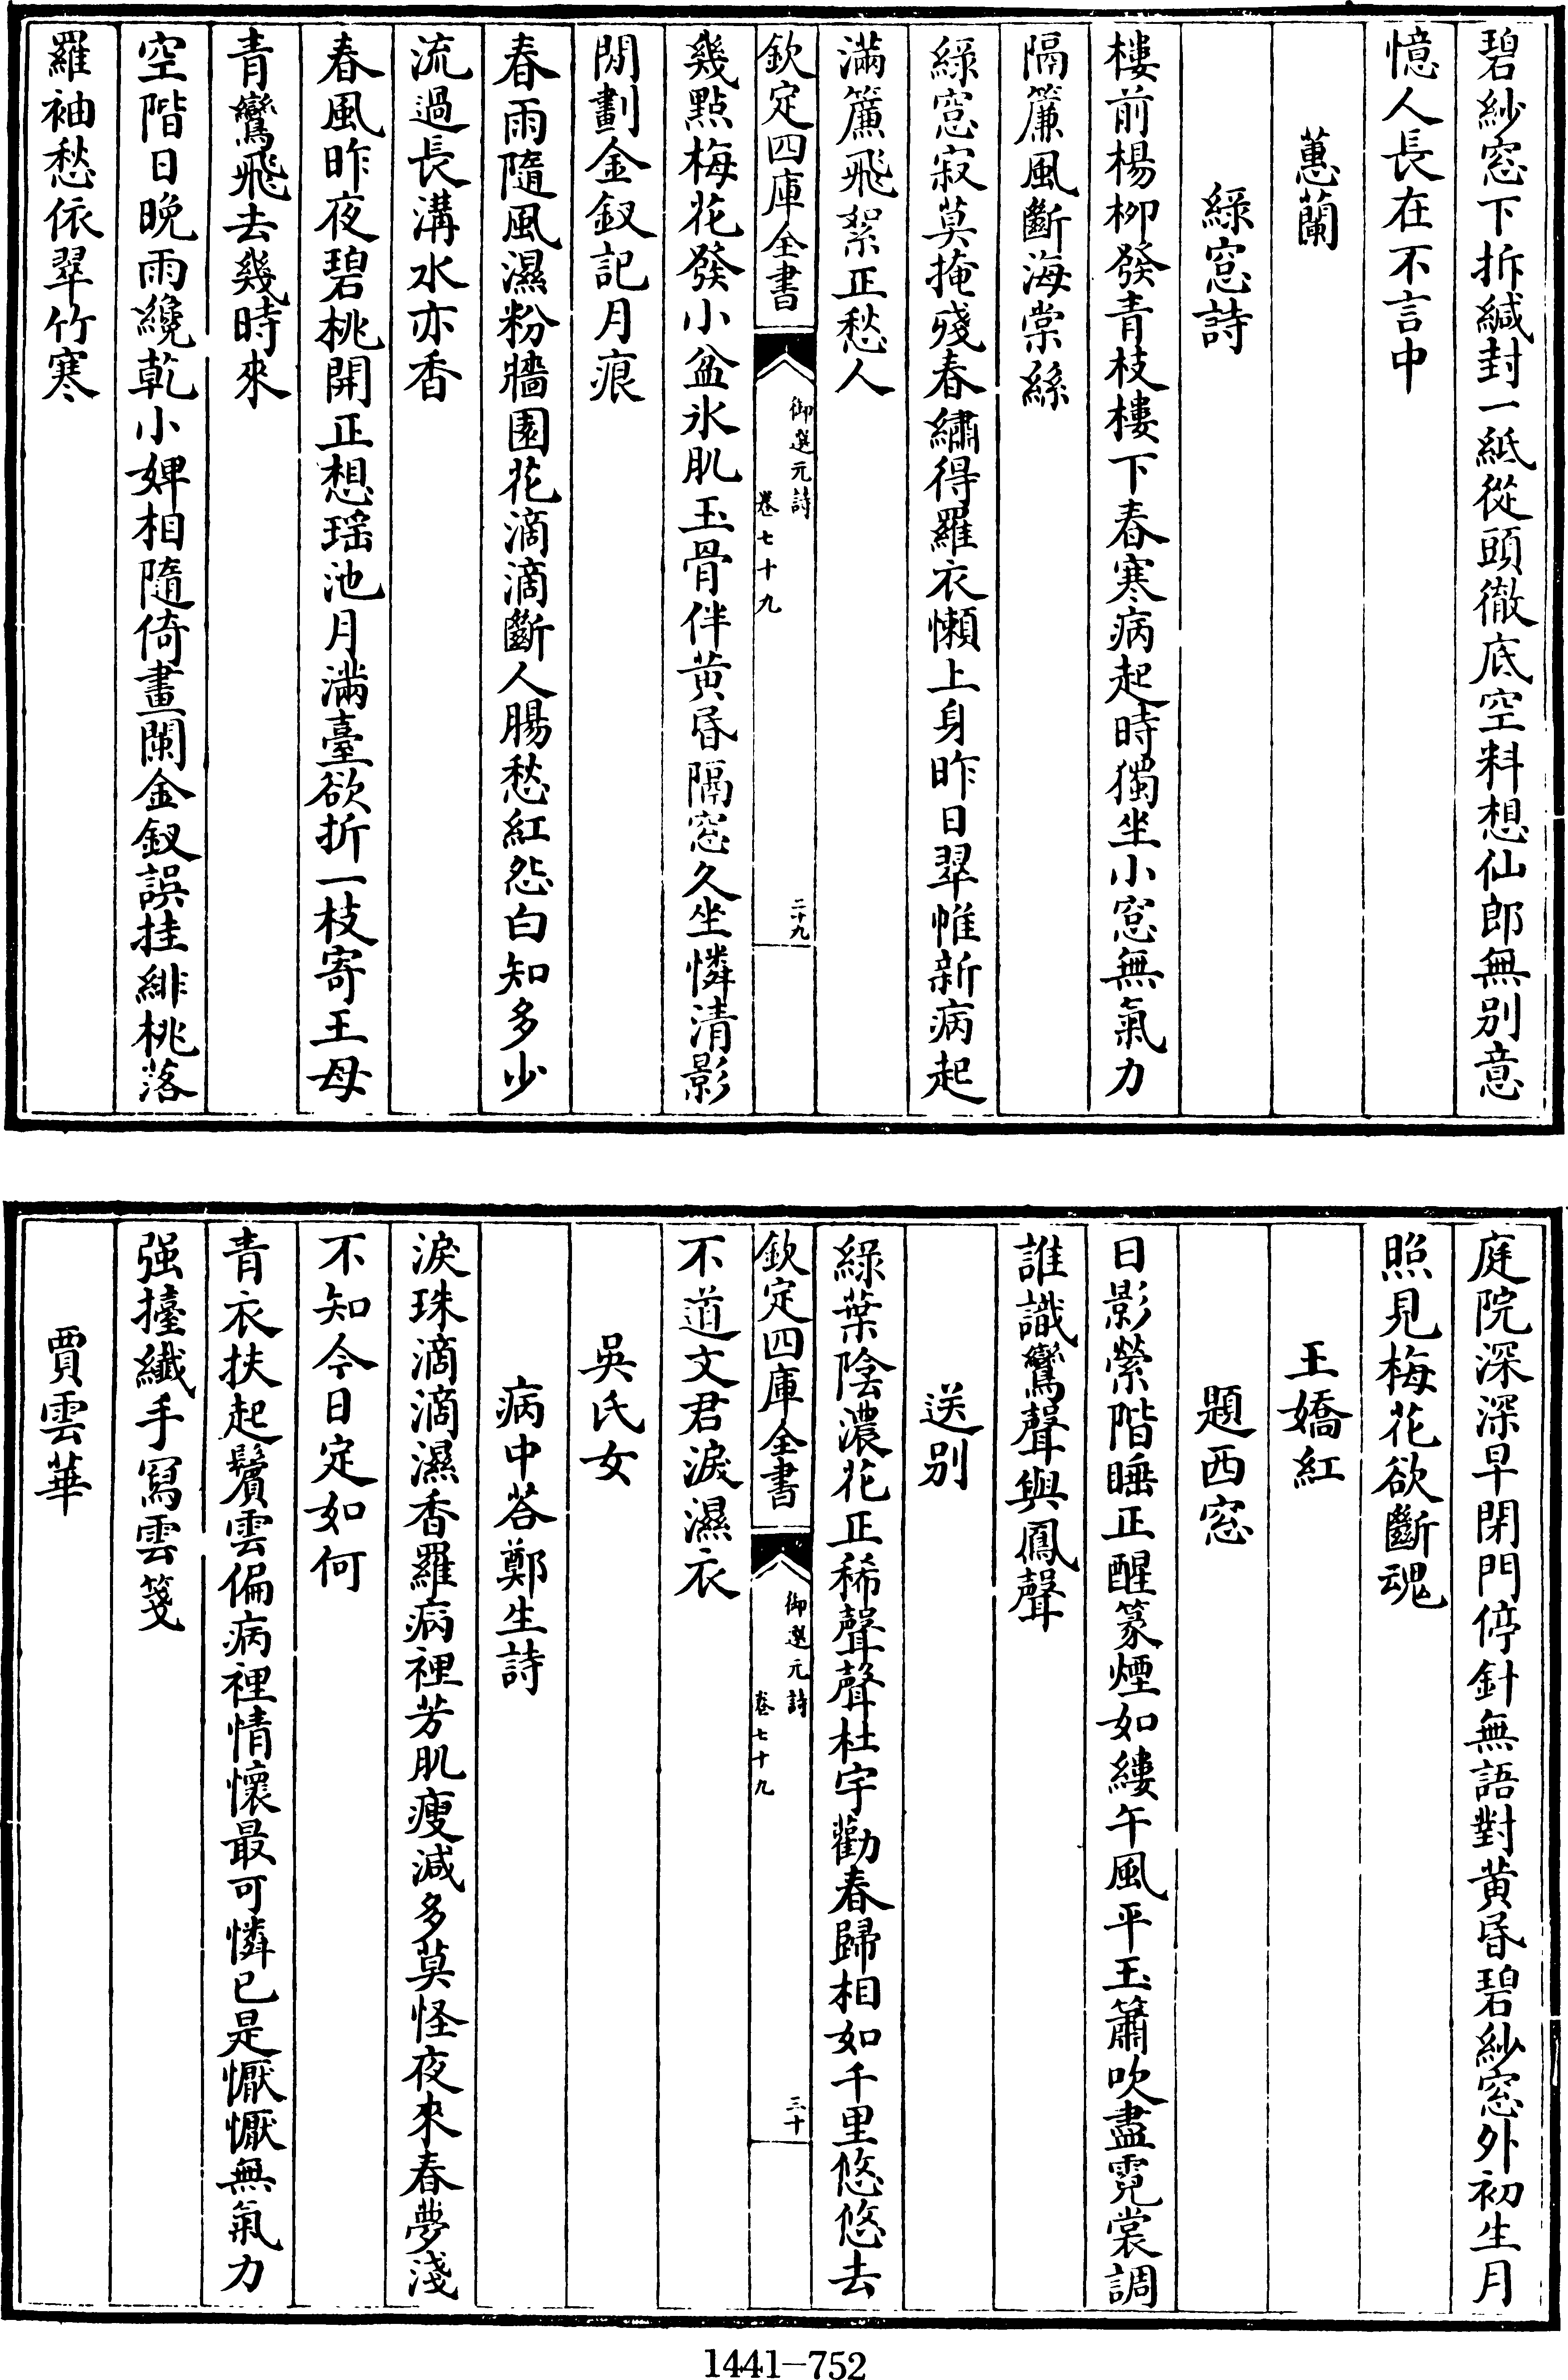 碧紗窓下拆緘封一紙從頭徹底空料想仙郎無别意
憶人長在不言中
蕙蘭
綠窓詩
樓前楊柳發青枝樓下春寒病起時獨坐小窓無氣力
隔簾風斷海棠絲
綠窓寂莫掩殘春繡得羅衣懶上身昨日翠帷新病起
滿簾飛絮正愁人
欽定四庫全書
御選元詩
卷七十九
二十九
幾點梅花發小盆氷肌玉骨伴黄昏隔窓久坐憐清影
閒劃金釵記月痕
春雨隨風濕粉牆園花滴滴斷人腸愁紅怨白知多少
流過長溝水亦香
春風昨夜碧桃開正想瑶池月滿臺欲折一枝寄王母
青鸞飛去幾時來
空階日晩雨纔乾小婢相隨倚畫闌金釵誤挂緋桃落
羅袖愁依翠竹寒
庭院深深早閉門停針無語對黄昏碧紗窓外初生月
照見梅花欲斷魂
王嬌紅
題西窓
日影縈階睡正醒篆煙如縷午風平玉簫吹盡霓裳調
誰識鸞聲與鳳聲
送别
綠葉陰濃花正稀聲聲杜宇勸春歸相如千里悠悠去
欽定四庫全書
御選元詩
卷七十九
三十
不道文君淚濕衣
吳氏女
病中荅鄭生詩
淚珠滴滴濕香羅病裡芳肌瘦減多莫怪夜來春夢淺
不知今日定如何
青衣扶起鬢雲偏病裡情懷最可憐已是懨懨無氣力
强擡纎手寫雲箋
賈雲華
1441-752